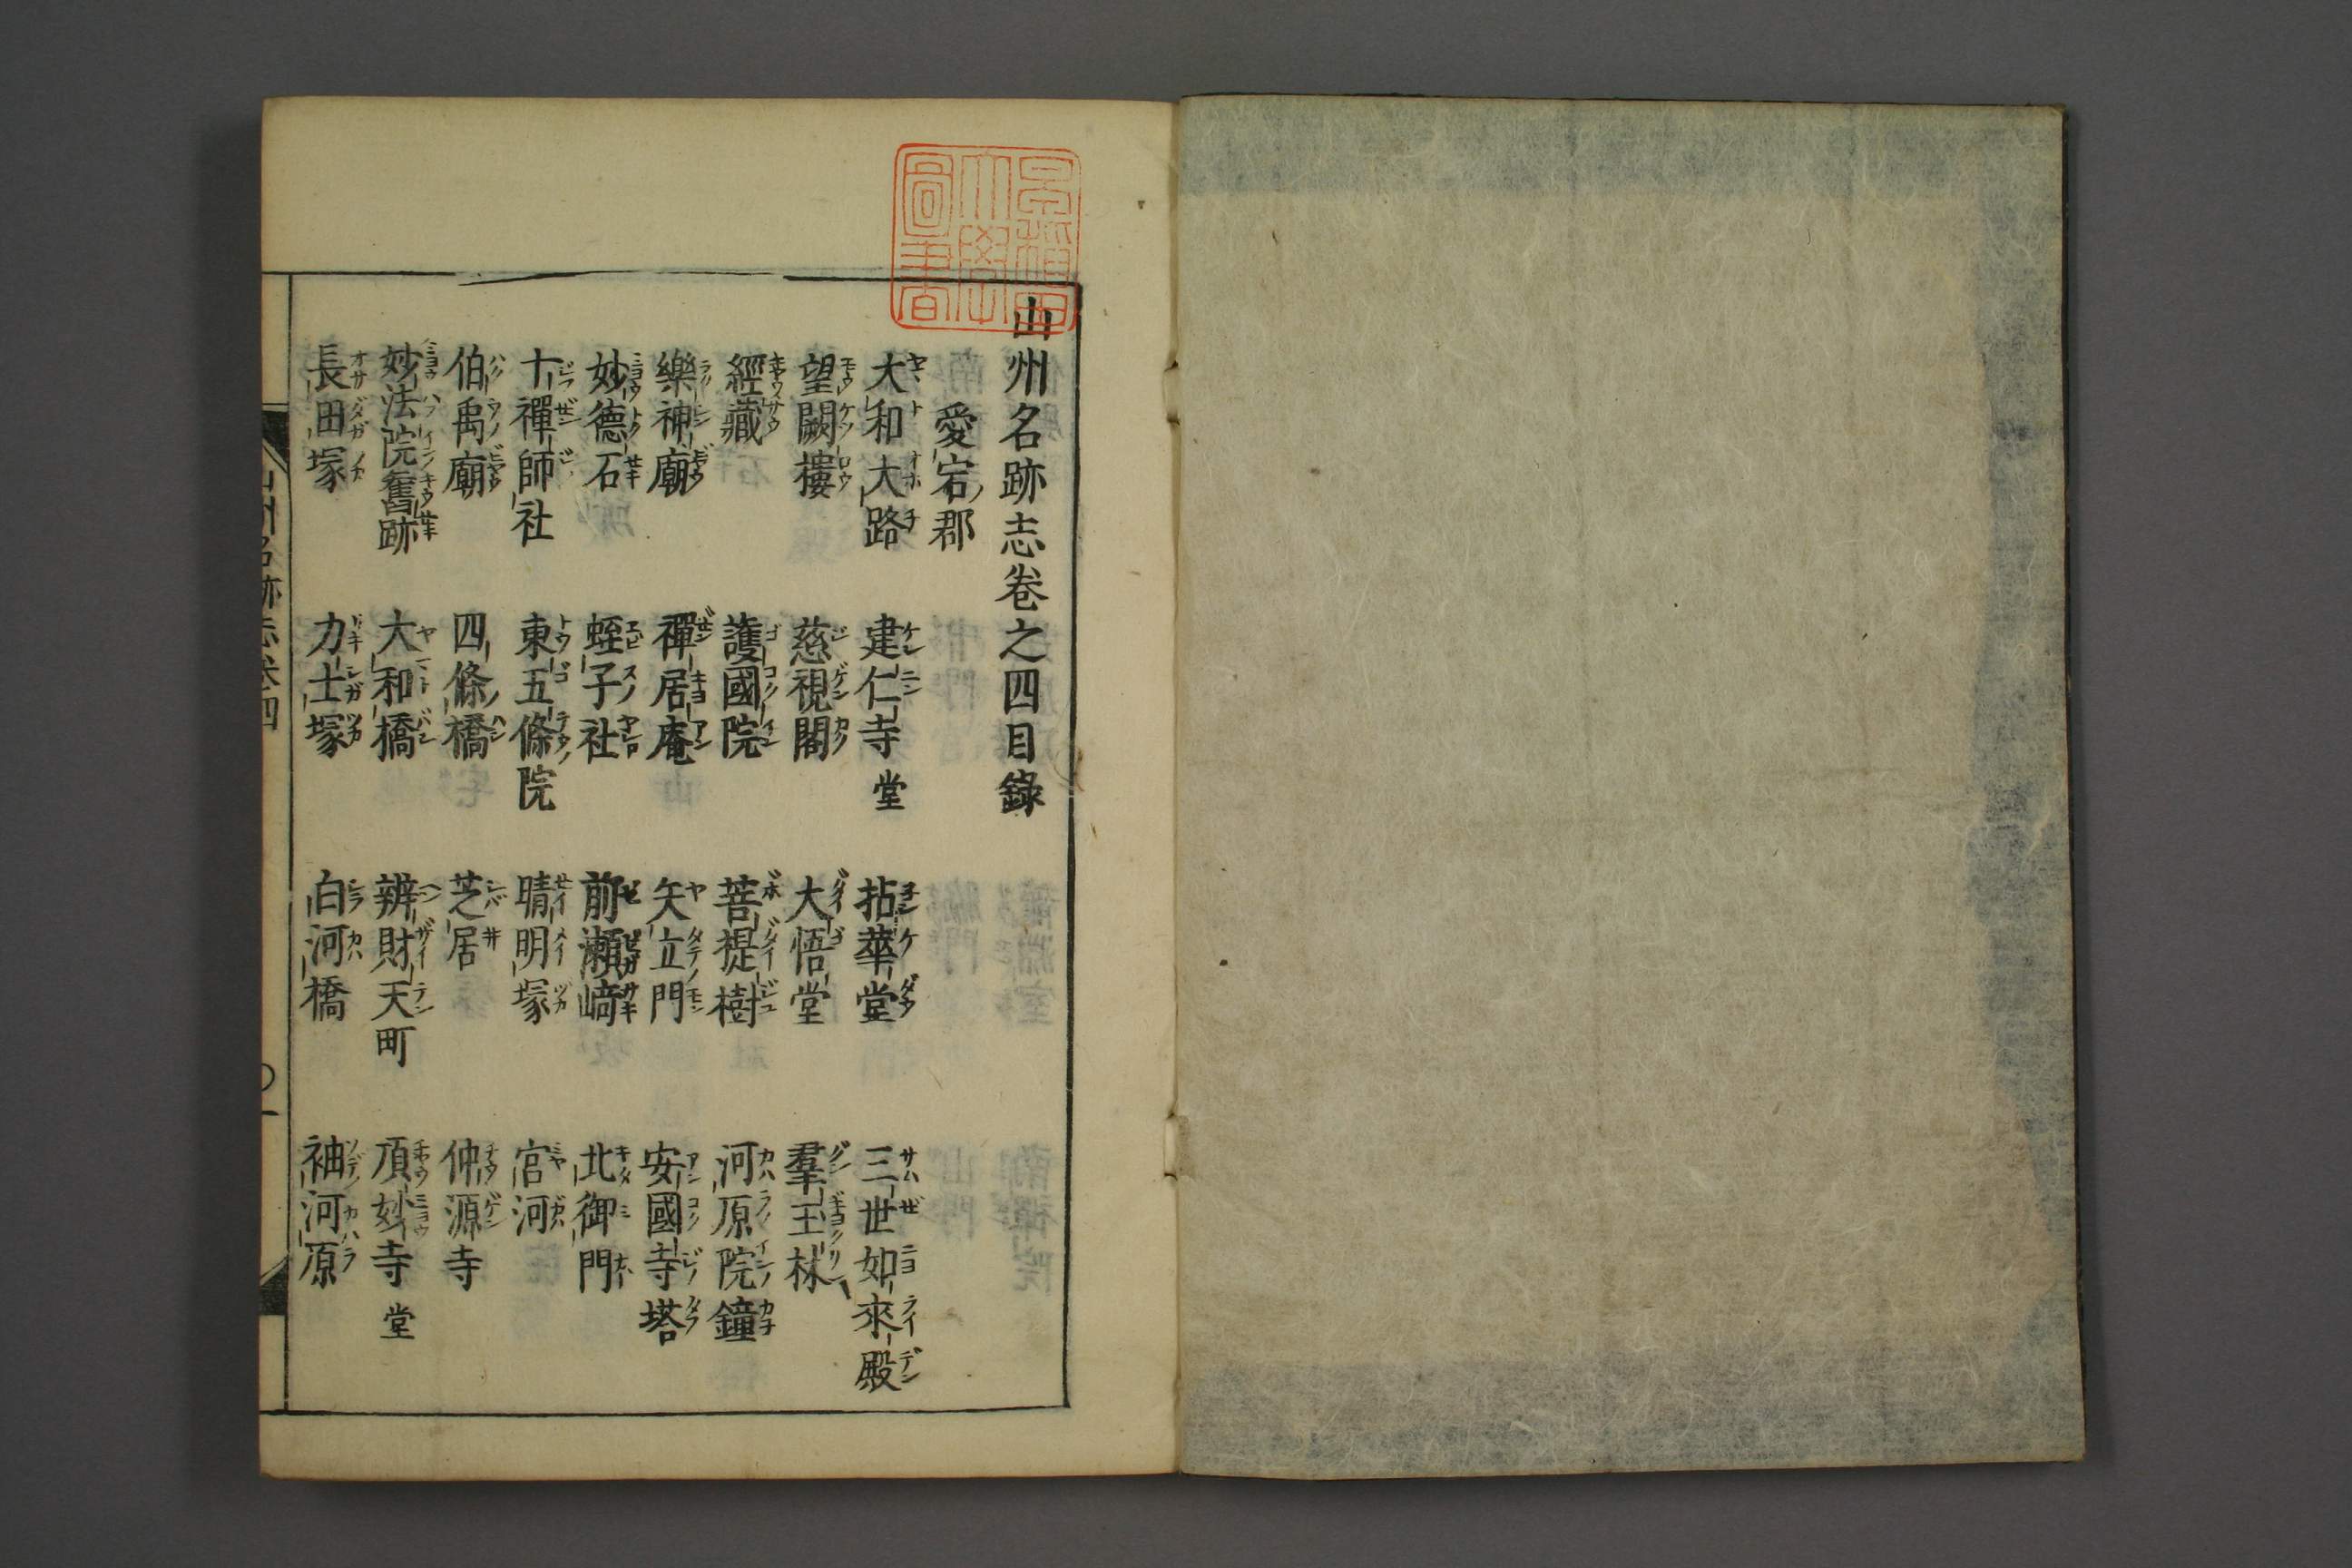 早稲田大學圖書
山州名跡志卷之四目錄
愛宕ノ郡
大和大路 建仁寺 堂 拈華堂 三世如來殿
望闕樓 慈視閣 大悟堂 羣玉林
經藏 護國院 菩提樹 河原院鐘
樂神廟 禪居庵 矢立門 安國寺塔
妙德石 蛭子社 前瀬﨑 北御門
十禪師社 東五條院 晴明塚 宮河
伯禹廟 四條橋 芝居 仲源寺
妙法院舊跡 大和橋 辨財天町 頂妙寺 堂
長田塚 力士塚 白河橋 袖河原
山州名跡志卷四